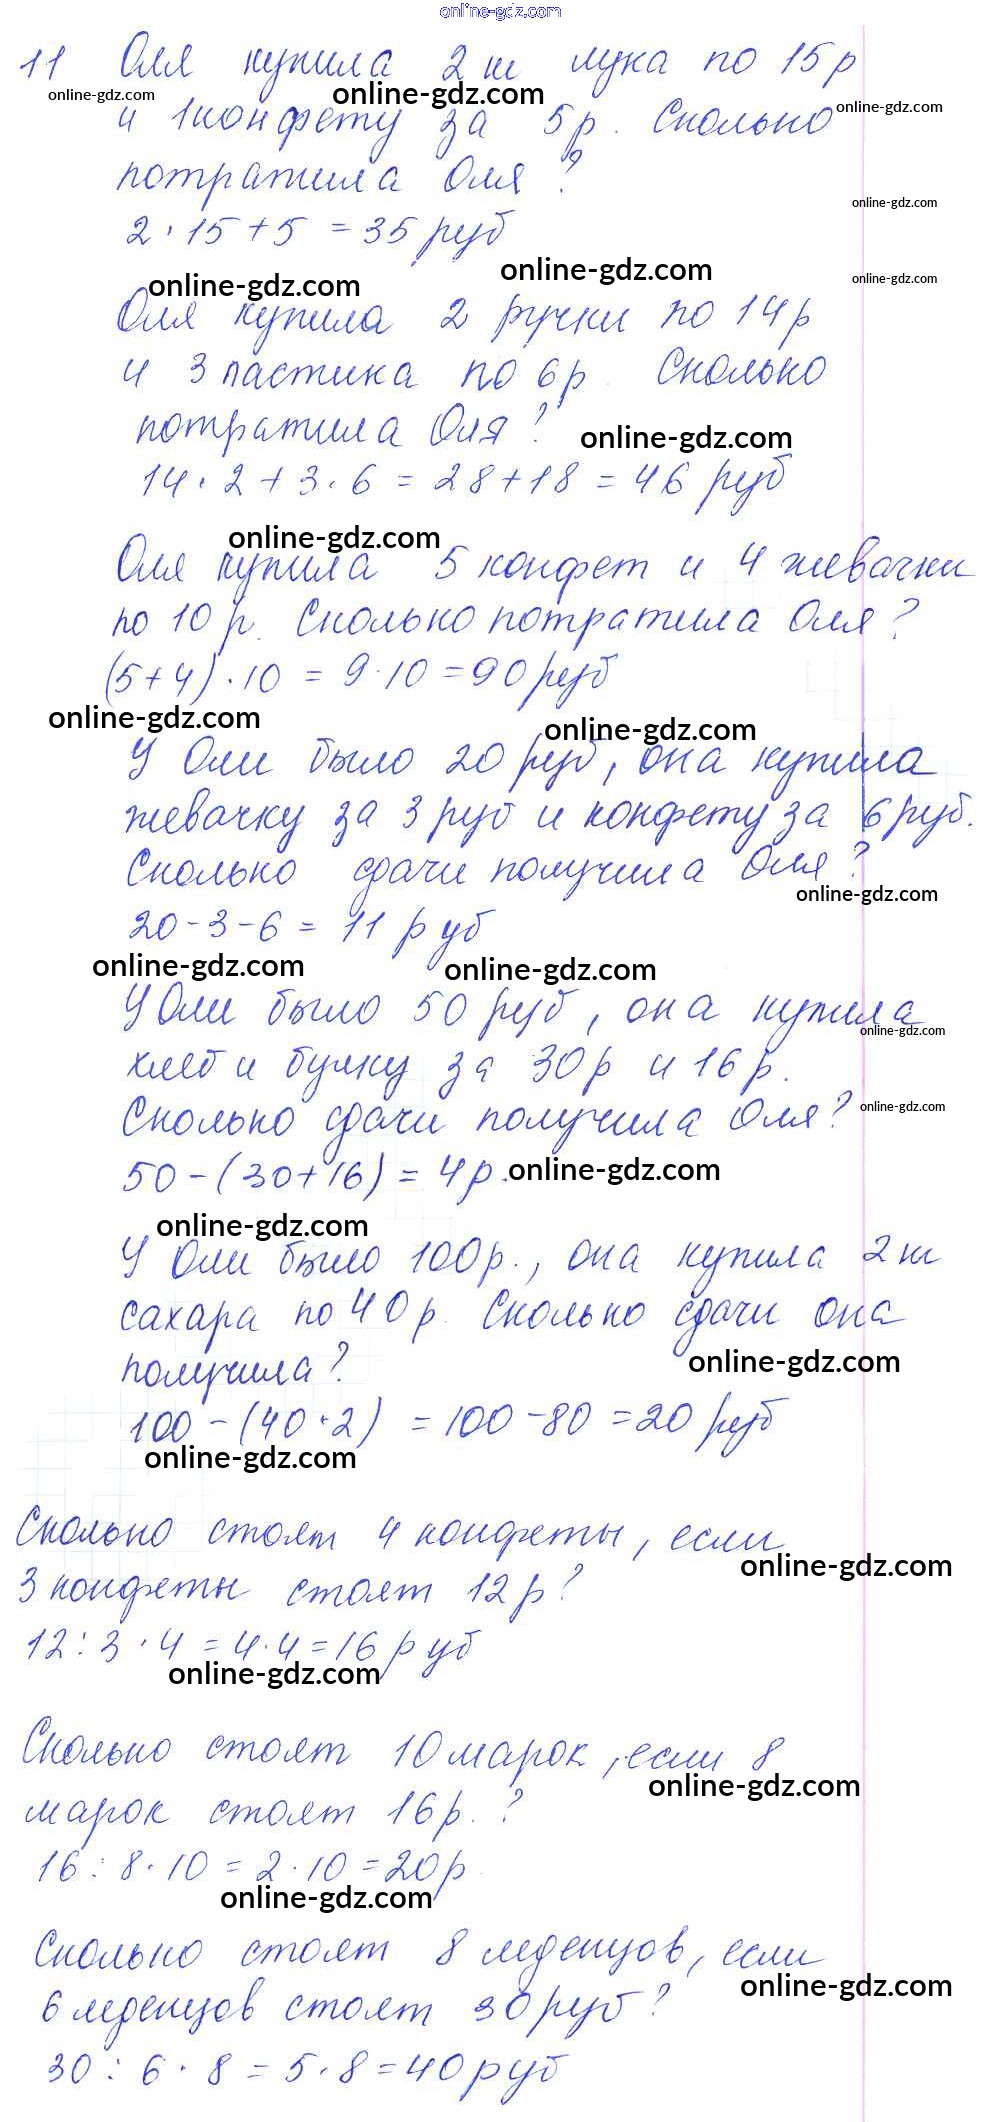 online-gdz.com
11 Оля купила 2 ш лука по 15 р
online-gdz.com online-gdz.com online-gdz.com
и 1 конфету за 5 р. Сколько
потратила Оля?
online-gdz.com
2 · 15 + 5 = 35 руб
online-gdz.com online-gdz.com online-gdz.com
Оля купила 2 ручки по 14 р
и 3 ластика по 6 р. Сколько
потратила Оля?
online-gdz.com
14 · 2 + 3 · 6 = 28 + 18 = 46 руб
online-gdz.com
Оля купила 5 конфет и 4 жевачки
по 10 р. Сколько потратила Оля?
(5 + 4) · 10 = 9 · 10 = 90 руб
online-gdz.com online-gdz.com
У Оли было 20 руб, она купила
жевачку за 3 руб и конфету за 6 руб.
Сколько сдачи получила Оля?
online-gdz.com
20 - 3 - 6 = 11 руб
online-gdz.com online-gdz.com
У Оли было 50 руб, она купила
online-gdz.com
хлеб и булку за 30 р и 16 р.
Сколько сдачи получила Оля?
online-gdz.com
50 - (30 + 16) = 4 р.
online-gdz.com
online-gdz.com
У Оли было 100 р., она купила 2 ш
сахара по 40 р. Сколько сдачи она
получила?
online-gdz.com
100 - (40 · 2) = 100 - 80 = 20 руб
online-gdz.com
Сколько стоят 4 конфеты, если
online-gdz.com
3 конфеты стоят 12 р?
12 : 3 · 4 = 4 · 4 = 16 руб
online-gdz.com
Сколько стоят 10 марок, если 8
online-gdz.com
марок стоят 16 р.?
16 : 8 · 10 = 2 · 10 = 20 р.
online-gdz.com
Сколько стоят 8 леденцов, если
online-gdz.com
6 леденцов стоят 30 руб?
30 : 6 · 8 = 5 · 8 = 40 руб